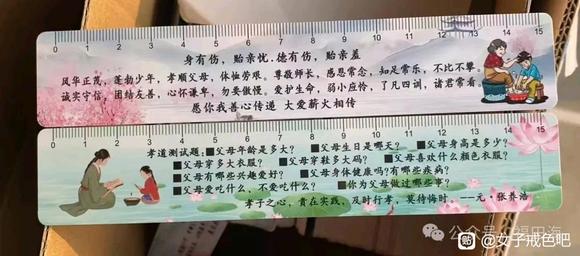 0 1 2 3 4 5 6 7 8 9 10 11 12 13 14 15
身有伤，贻亲忧.德有伤，贻亲羞
风华正茂，蓬勃少年，孝顺父母，体恤劳艰，尊敬师长，感恩常念，知足常乐，不比不攀，
诚实守信，团结友善，心怀谦卑，勿要傲慢，爱护生命，弱小应怜，了凡四训，诸君常看。
愿你我善心传递 大爱薪火相传
0 1 2 3 4 5 6 7 8 9 10 11 12 13 14 15
孝道测试题：■父母年龄是多大？■父母生日是哪天？■父母身高是多少？
■父母穿多大衣服？■父母穿鞋多大码？■父母喜欢什么颜色衣服？
■父母有哪些兴趣爱好？■父母身体健康吗？有哪些疾病？
■父母爱吃什么，不爱吃什么？■你为父母做过哪些事？
孝子之心，贵在实践，及时行孝，莫待悔时 ——元·张养浩
公众号·福田海
贴 @女子戒色吧